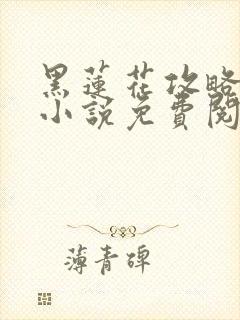 黑蓮花攻略
小說免費閱
薄青碑